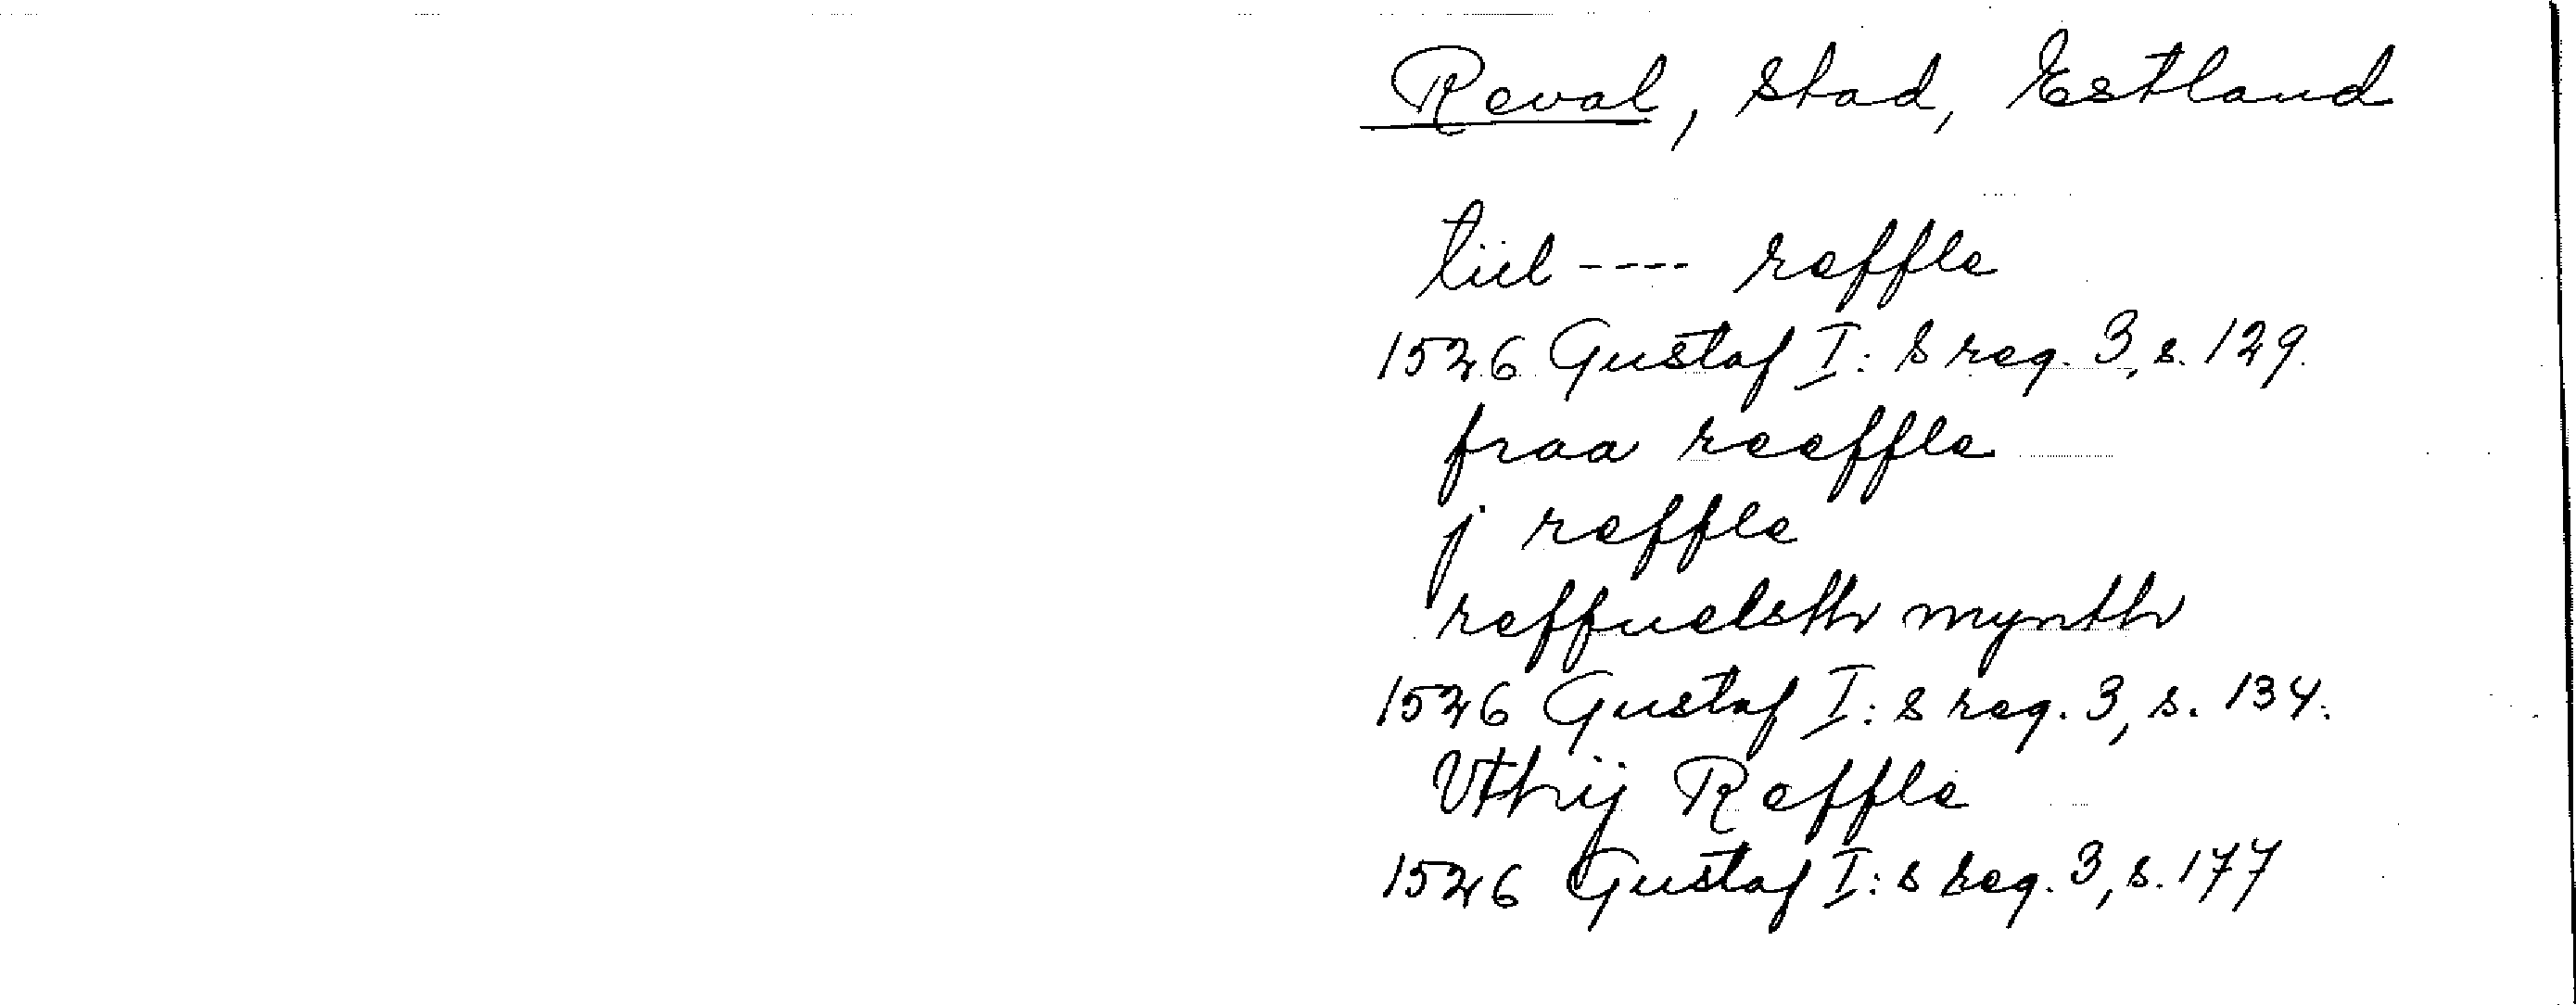 Reval, stad, Estland
tiil ---- reffle
1526 Gustaf I: s reg. 3, s. 129.
fraa reeffle
j reffle
reffuelsth mynth
1526 Gustaf I: s reg. 3, s. 134.
Vthrij Reffle
1526 Gustaf I: s reg. 3, s. 177